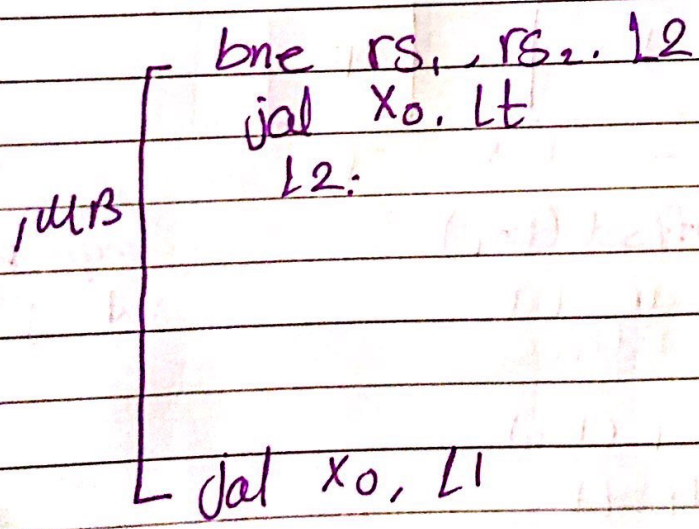 bne rs₁, rs₂. L2
jal x0. Lt
L2:
1MB
jal x0, L1